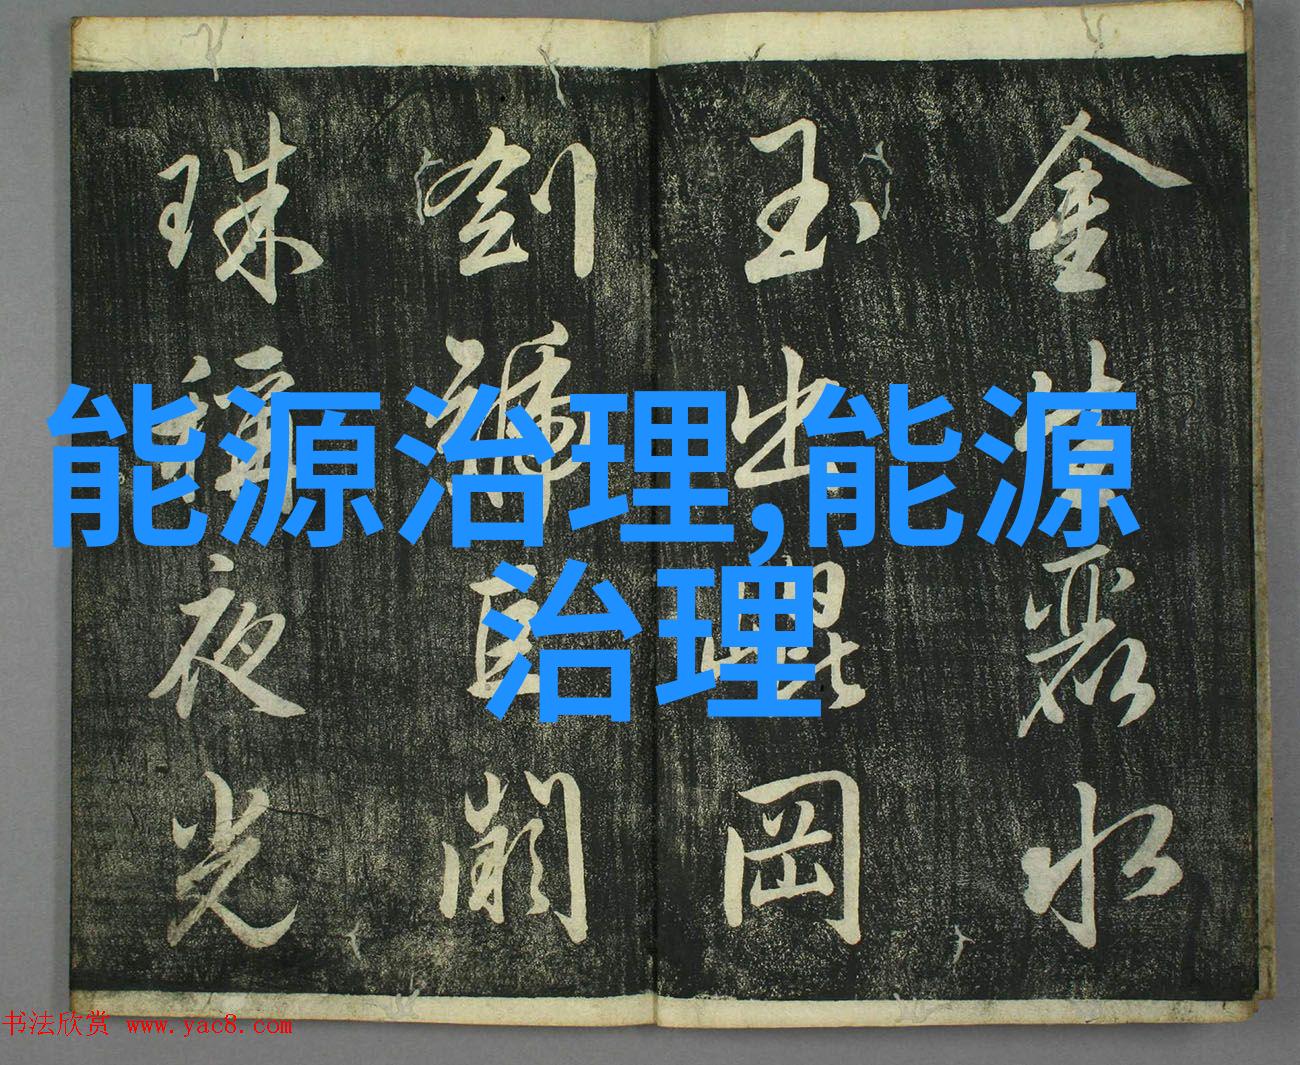 金生麗水
玉出崐岡
劍號巨闕
珠稱夜光
能源治理,能源
治理
书法欣赏 www.yac8.com